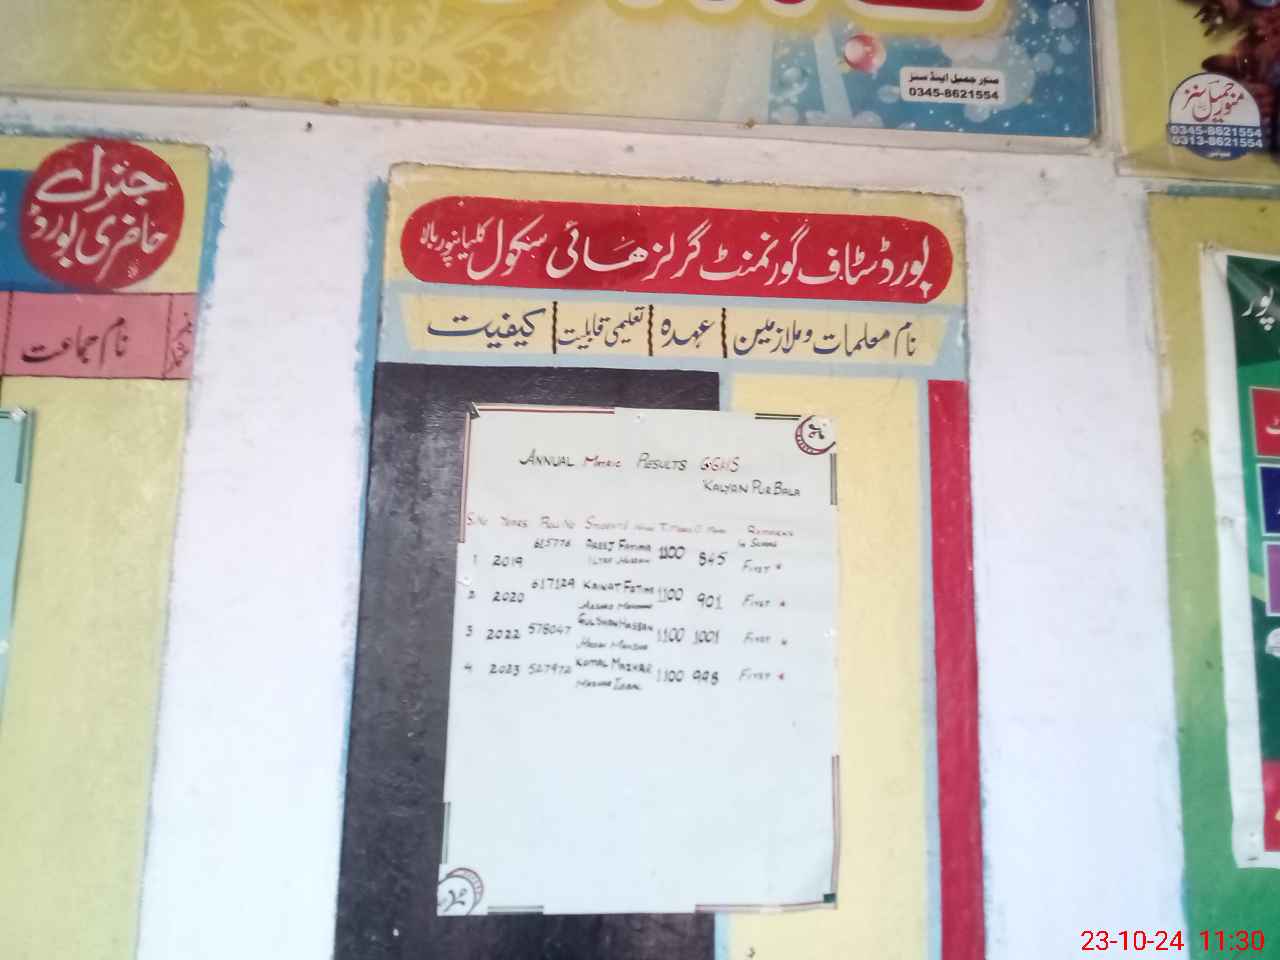 منور جمیل اینڈ سنز
0345-8621554
منور جمیل سنز
0345-8621554
0313-8621554
جنرل
حاضری بورڈ
نام جماعت
بورڈ سٹاف گورنمنٹ گرلز ہائی سکول کلیانپور بالا
نام معلمات و ملازمین عہدہ تعلیمی قابلیت کیفیت
پور
ANNUAL MATRIC RESULTS G.G.H.S
KALYAN PUR BALA
S.No YEARS ROLL NO STUDENTS NAME T.MARKS O.MARKS REMARKS
IN SCHOOL
1 2019 615776 AREEJ FATIMA 1100 845 FIRST
2 2020 617129 KAINAT FATIMA 1100 901 FIRST
3 2022 578047 GULSHAN HASSAN 1100 1001 FIRST
4 2023 527972 KOMAL MAZHAR 1100 998 FIRST
MAZHAR IQBAL
23-10-24 11:30